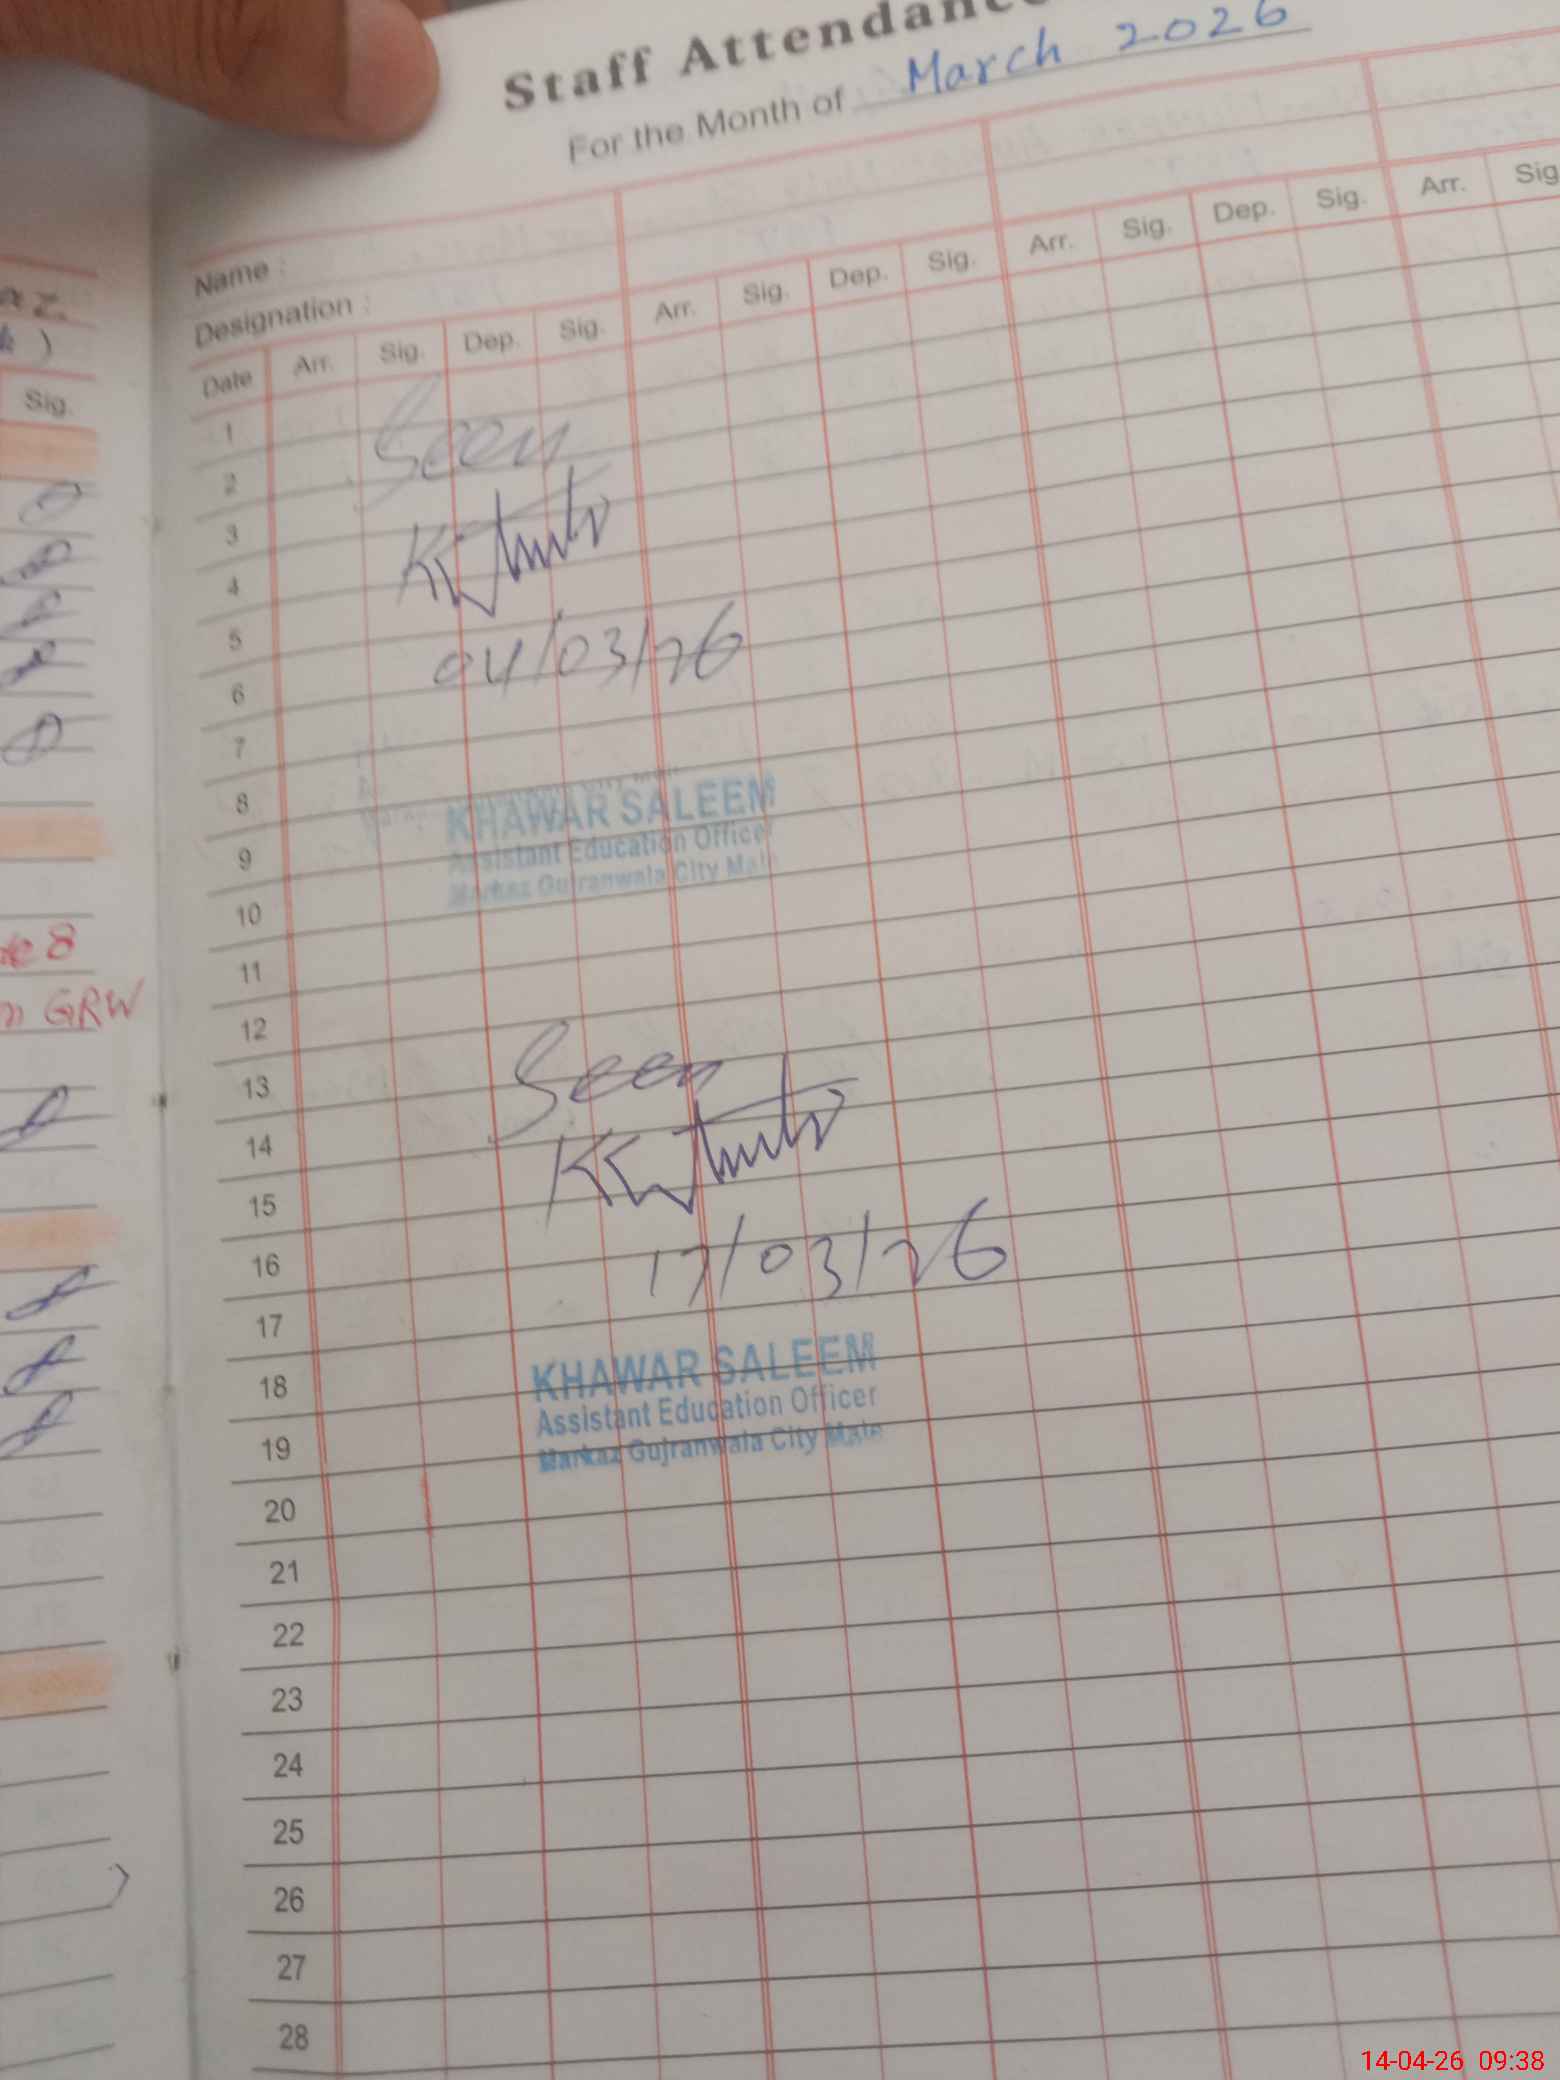 Staff Attendance
For the Month of March 2026
Name :
Designation :
Date Arr. Sig. Dep. Sig. Arr. Sig. Dep. Sig. Arr. Sig. Dep. Sig. Arr. Sig.
Sig.
1
2
3
4
5
6
7
8
9
10
11
12
13
14
15
16
17
18
19
20
21
22
23
24
25
26
27
28
Seen
04/03/26
KHAWAR SALEEM
Assistant Education Officer
Markaz Gujranwala City Male
Seen
17/03/26
KHAWAR SALEEM
Assistant Education Officer
Markaz Gujranwala City Male
8
GRW
14-04-26 09:38